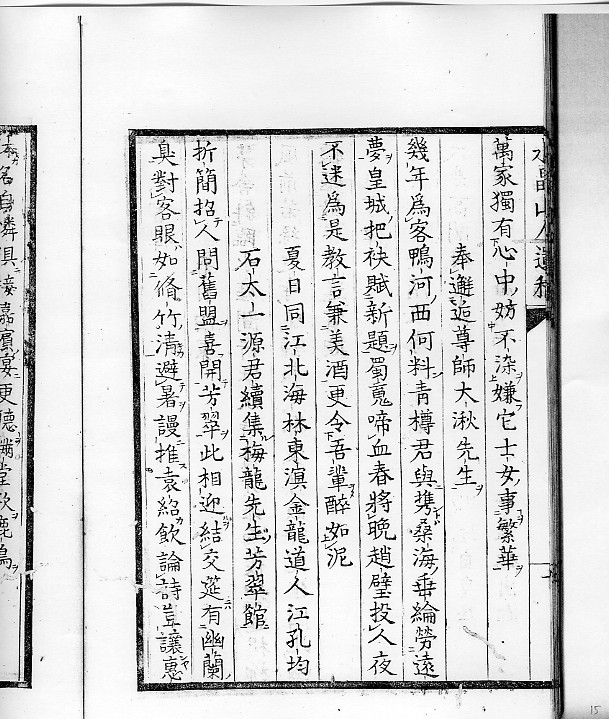 水晶山人遺稿
萬家獨有心中妨不染嫌它士女事繁華
奉邂逅尊師大湫先生
幾年爲客鴨河西何料青樽君與携桑海垂綸勞遠
夢皇城把袂賦新題蜀䰟啼血春將晩趙璧投人夜
不迷爲是教言兼美酒更令吾輩醉如泥
夏日同江北海林東溟金龍道人江孔均
石太一源君續集梅龍先生芳翠館
折簡招人問舊盟喜開芳翠此相迎結交莚有幽蘭
臭對客眼如脩竹清避暑謾推袁紹飲論詩豈讓惠
名自憐俱接嘉賓宴更聽滿堂歌鹿鳴
15